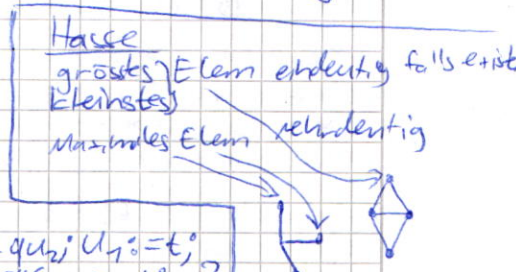 Hasse
grösstes } Elem eindeutig falls exist
kleinstes }
Maximales Elem
qu₂; u₁:=t;